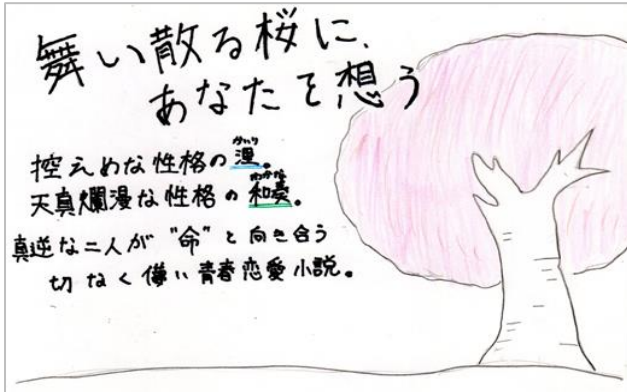 舞い散る桜に、
あなたを想う
控えめな性格の浬。
天真爛漫な性格の和奏。
わかな
真逆な二人が"命"と向き合う
切なく儚い青春恋愛小説。